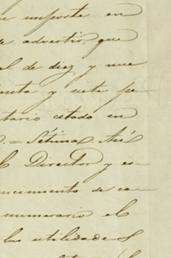 importe en
advertir, que
el de diez y nue
enta y siete pe
tario citado en
Sétima. Así
Director y es
ncumento de ca
numerario el
las utilidades